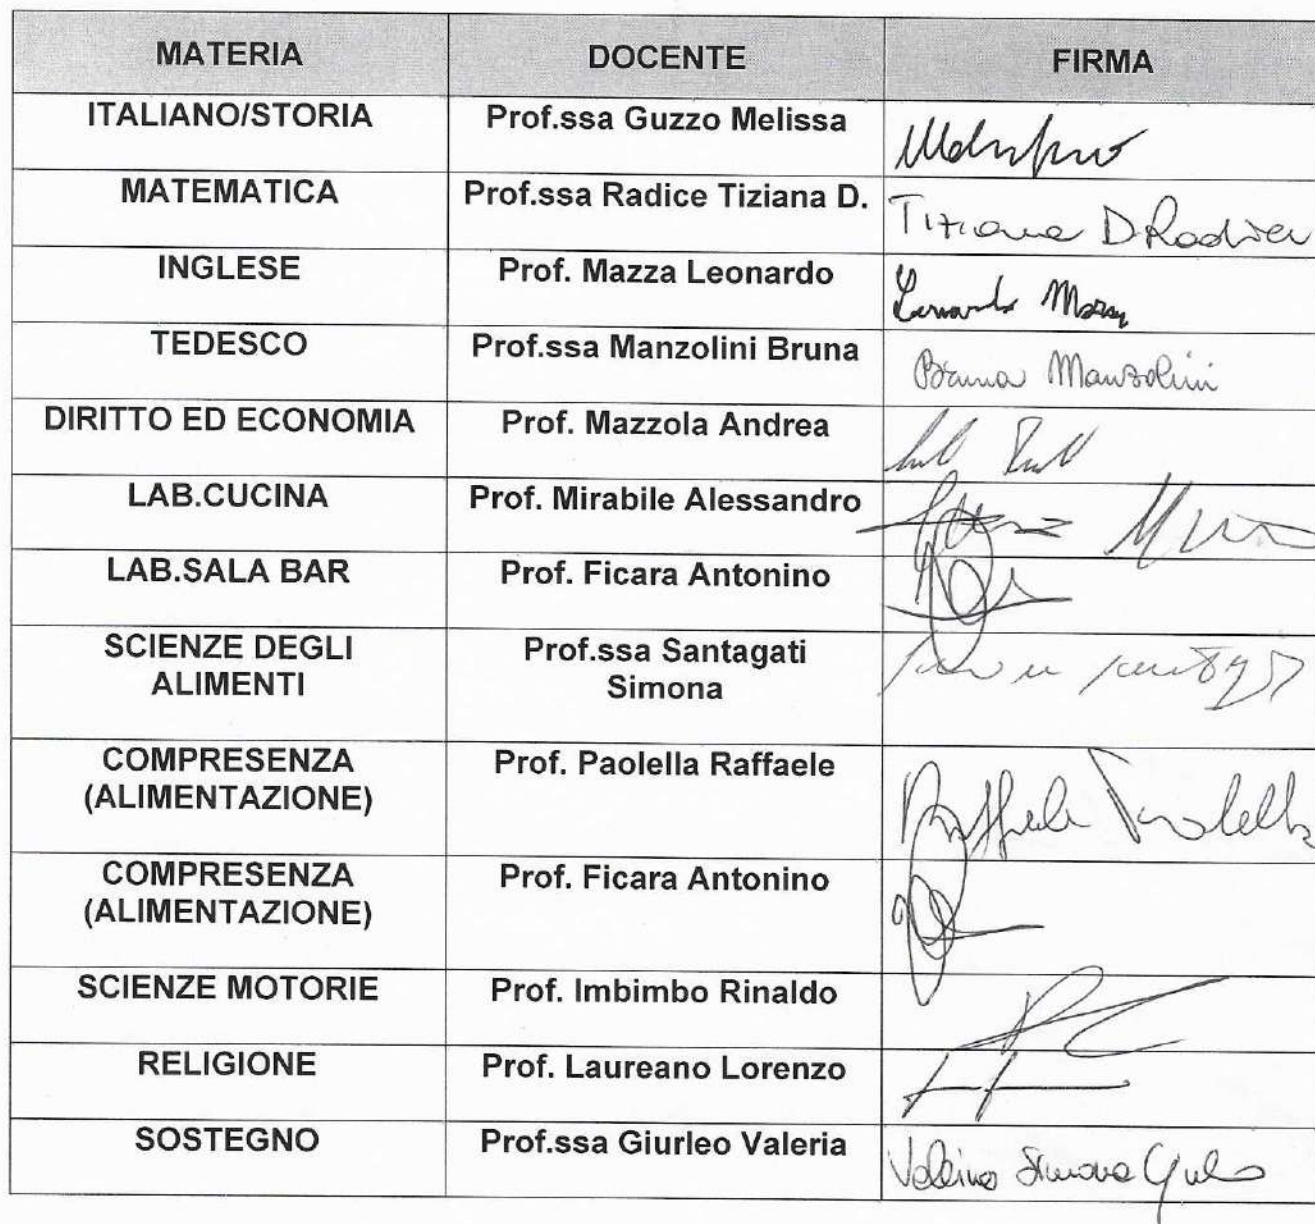 MATERIA DOCENTE FIRMA
ITALIANO/STORIA Prof.ssa Guzzo Melissa
MATEMATICA Prof.ssa Radice Tiziana D. Tiziana D Radice
INGLESE Prof. Mazza Leonardo Leonardo Mazza
TEDESCO Prof.ssa Manzolini Bruna Bruna Manzolini
DIRITTO ED ECONOMIA Prof. Mazzola Andrea
LAB.CUCINA Prof. Mirabile Alessandro
LAB.SALA BAR Prof. Ficara Antonino
SCIENZE DEGLI Prof.ssa Santagati
ALIMENTI Simona
COMPRESENZA Prof. Paolella Raffaele
(ALIMENTAZIONE) Raffaele Paolella
COMPRESENZA Prof. Ficara Antonino
(ALIMENTAZIONE)
SCIENZE MOTORIE Prof. Imbimbo Rinaldo
RELIGIONE Prof. Laureano Lorenzo
SOSTEGNO Prof.ssa Giurleo Valeria